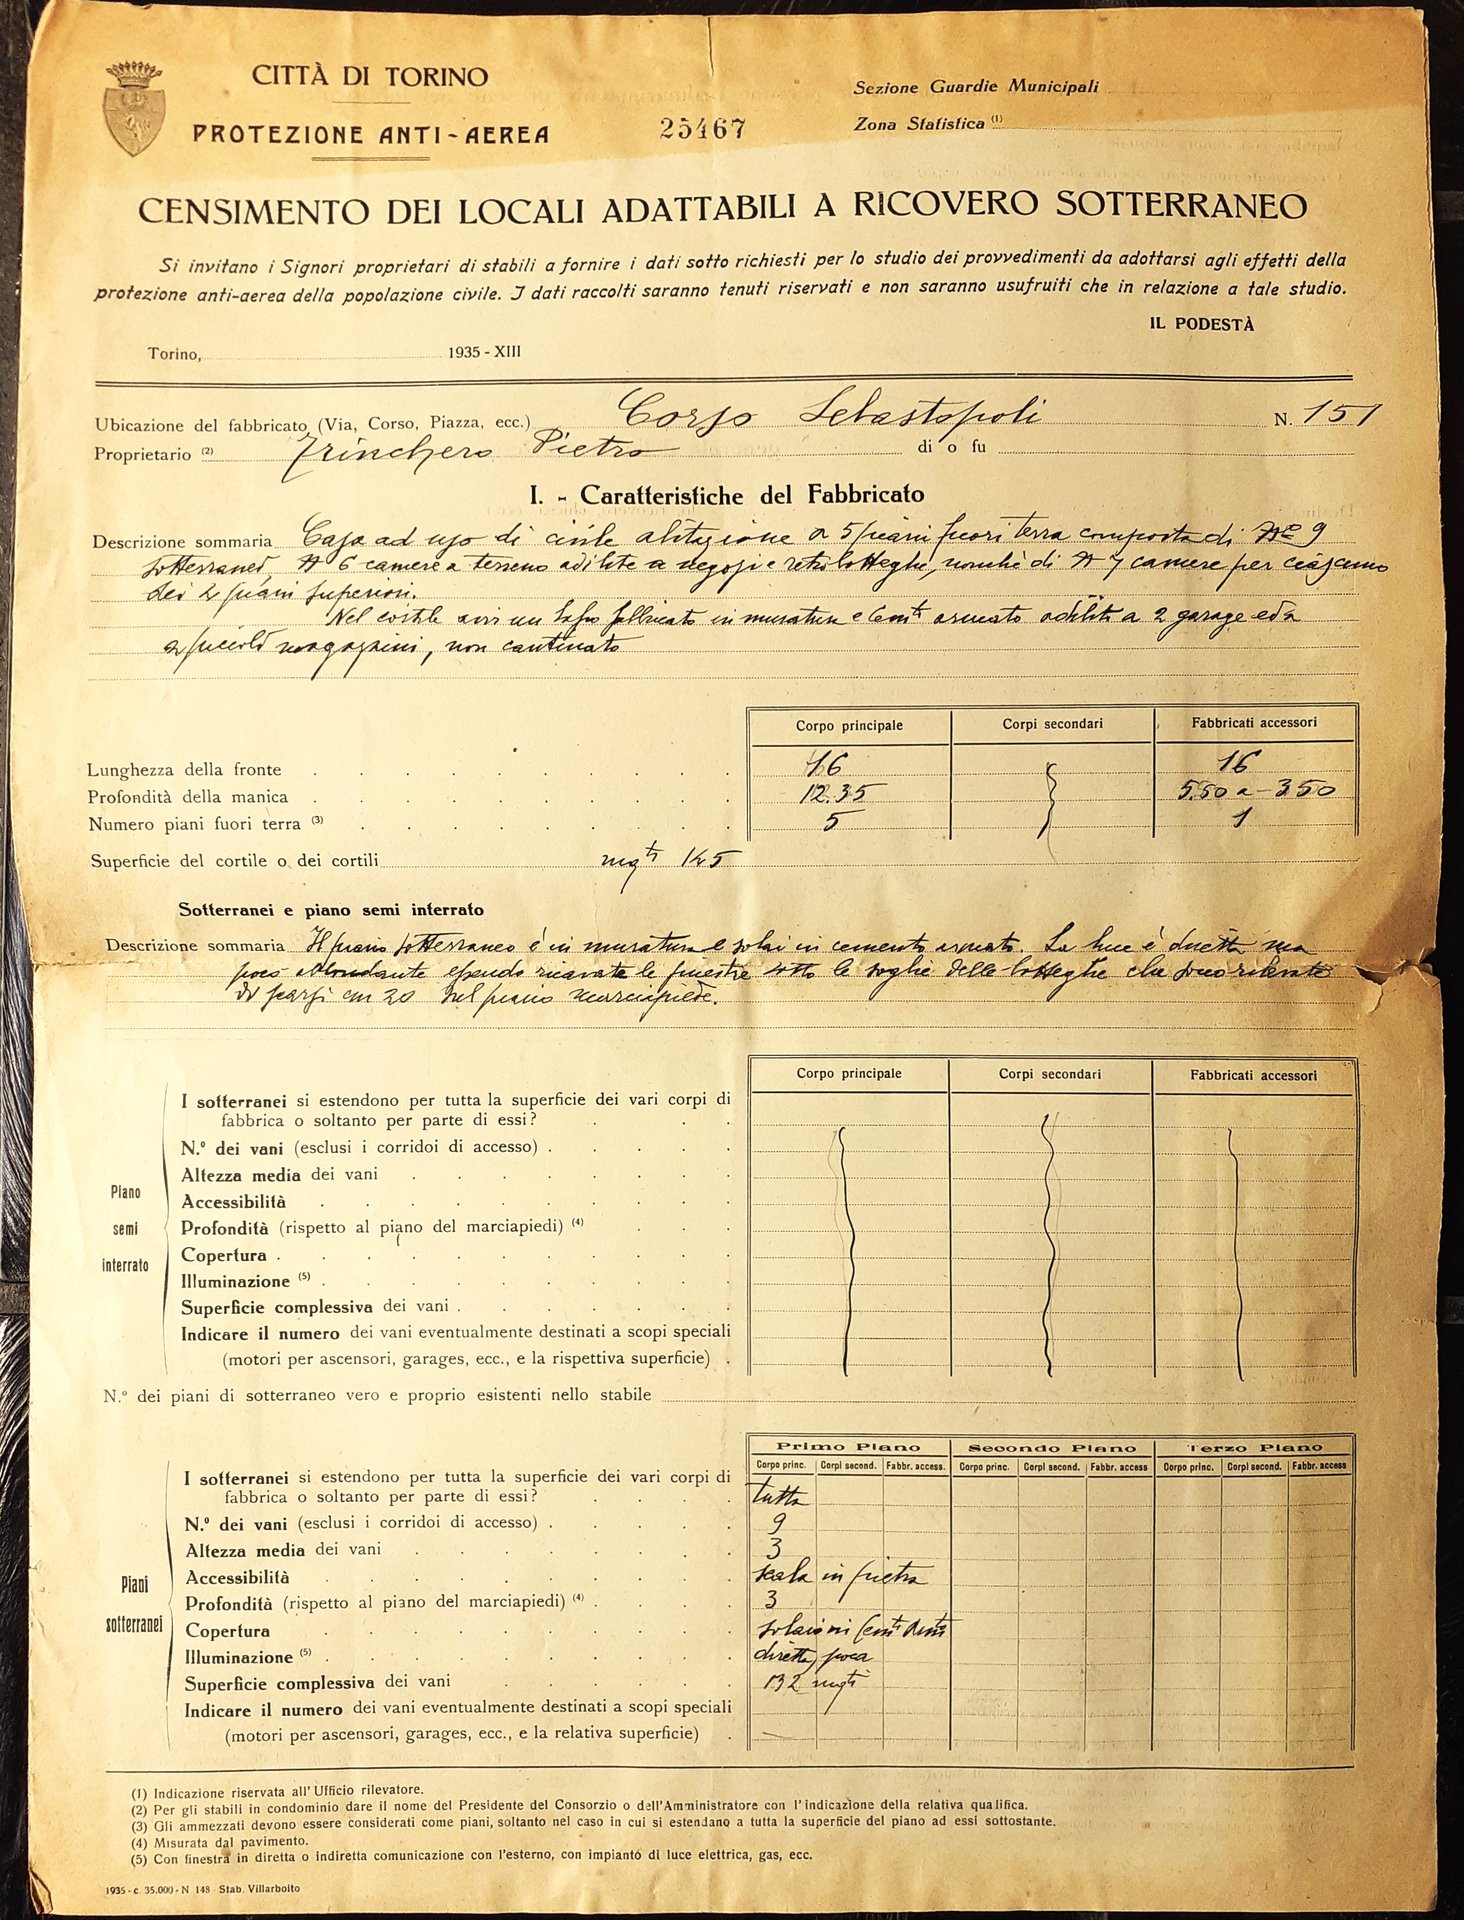 CITTÀ DI TORINO
PROTEZIONE ANTI-AEREA
25467
Sezione Guardie Municipali
Zona Statistica (1)
CENSIMENTO DEI LOCALI ADATTABILI A RICOVERO SOTTERRANEO
Si invitano i Signori proprietari di stabili a fornire i dati sotto richiesti per lo studio dei provvedimenti da adottarsi agli effetti della
protezione anti-aerea della popolazione civile. I dati raccolti saranno tenuti riservati e non saranno usufruiti che in relazione a tale studio.
IL PODESTÀ
Torino, 1935 - XIII
Ubicazione del fabbricato (Via, Corso, Piazza, ecc.) Corso Sebastopoli N. 151
Proprietario (2) Trinchero Pietro di o fu
I. - Caratteristiche del Fabbricato
Descrizione sommaria Casa ad uso di civile abitazione a 5 piani fuori terra composta di N° 9
sotterranei, N 6 camere a terreno adibite a negozi e retrobotteghe, nonchè di N 7 camere per ciascuno
dei 2 piani superiori.
Nel cortile avvi un basso fabbricato in muratura e Cemto armato adibiti a 2 garage ed a
2 piccoli magazzini, non cantinato
Corpo principale Corpi secondari Fabbricati accessori
Lunghezza della fronte 16 16
Profondità della manica 12.35 5.50 a 3.50
Numero piani fuori terra (3) 5 1
Superficie del cortile o dei cortili mqti 125
Sotterranei e piano semi interrato
Descrizione sommaria Il piano sotterraneo è in muratura e solai in cemento armato. La luce è diretta ma
poco abbondante essendo ricavate le finestre sotto le soglie delle botteghe che sono rilevate
di scarsi cm 20 sul piano marciapiede.
Corpo principale Corpi secondari Fabbricati accessori
Piano semi interrato
I sotterranei si estendono per tutta la superficie dei vari corpi di
fabbrica o soltanto per parte di essi?
N.° dei vani (esclusi i corridoi di accesso)
Altezza media dei vani
Accessibilità
Profondità (rispetto al piano del marciapiedi) (4)
Copertura
Illuminazione (5)
Superficie complessiva dei vani
Indicare il numero dei vani eventualmente destinati a scopi speciali
(motori per ascensori, garages, ecc., e la rispettiva superficie)
N.° dei piani di sotterraneo vero e proprio esistenti nello stabile
Primo Piano Secondo Piano Terzo Piano
Corpo princ. Corpi second. Fabbr. access. Corpo princ. Corpi second. Fabbr. access Corpo princ. Corpi second. Fabbr. access
Piani sotterranei
I sotterranei si estendono per tutta la superficie dei vari corpi di
fabbrica o soltanto per parte di essi? tutta
N.° dei vani (esclusi i corridoi di accesso) 9
Altezza media dei vani 3
Accessibilità scala in pietra
Profondità (rispetto al piano del marciapiedi) (4) 3
Copertura solaio in Cemto Armto
Illuminazione (5) diretta, poca
Superficie complessiva dei vani 132 mqti
Indicare il numero dei vani eventualmente destinati a scopi speciali
(motori per ascensori, garages, ecc., e la relativa superficie) —
(1) Indicazione riservata all'Ufficio rilevatore.
(2) Per gli stabili in condominio dare il nome del Presidente del Consorzio o dell'Amministratore con l'indicazione della relativa qualifica.
(3) Gli ammezzati devono essere considerati come piani, soltanto nel caso in cui si estendano a tutta la superficie del piano ad essi sottostante.
(4) Misurata dal pavimento.
(5) Con finestra in diretta o indiretta comunicazione con l'esterno, con impianto di luce elettrica, gas, ecc.
1935 - c. 35.000 - N 148 - Stab. Villarboito